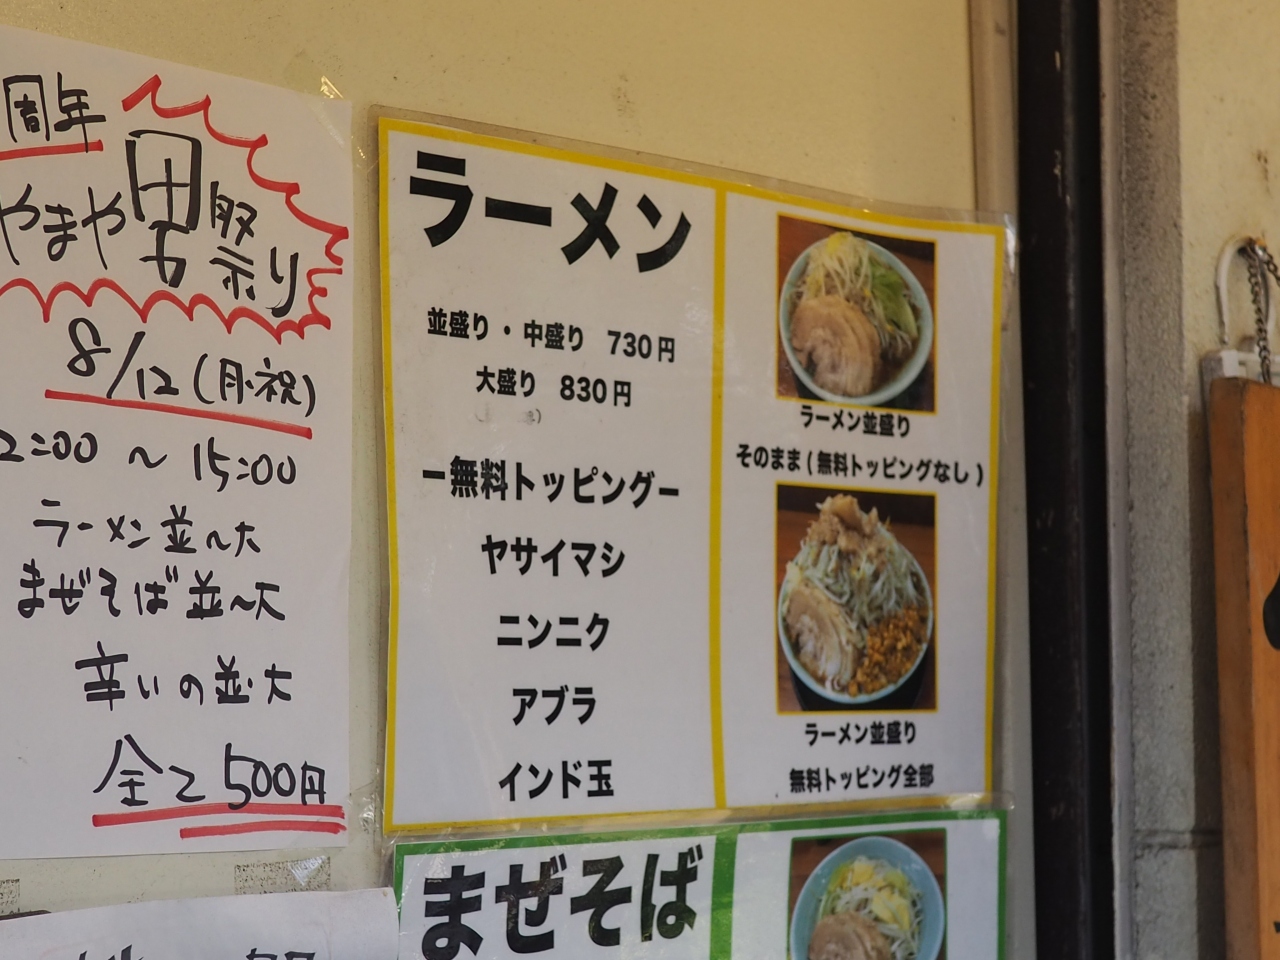 周年
やまや男祭り
8/12(月・祝)
2:00 ～ 15:00
ラーメン並～大
まぜそば並～大
辛いの並・大
全て500円
ラーメン
並盛り・中盛り 730円
大盛り 830円
ー無料トッピングー
ヤサイマシ
ニンニク
アブラ
インド玉
ラーメン並盛り
そのまま(無料トッピングなし)
ラーメン並盛り
無料トッピング全部
まぜそば